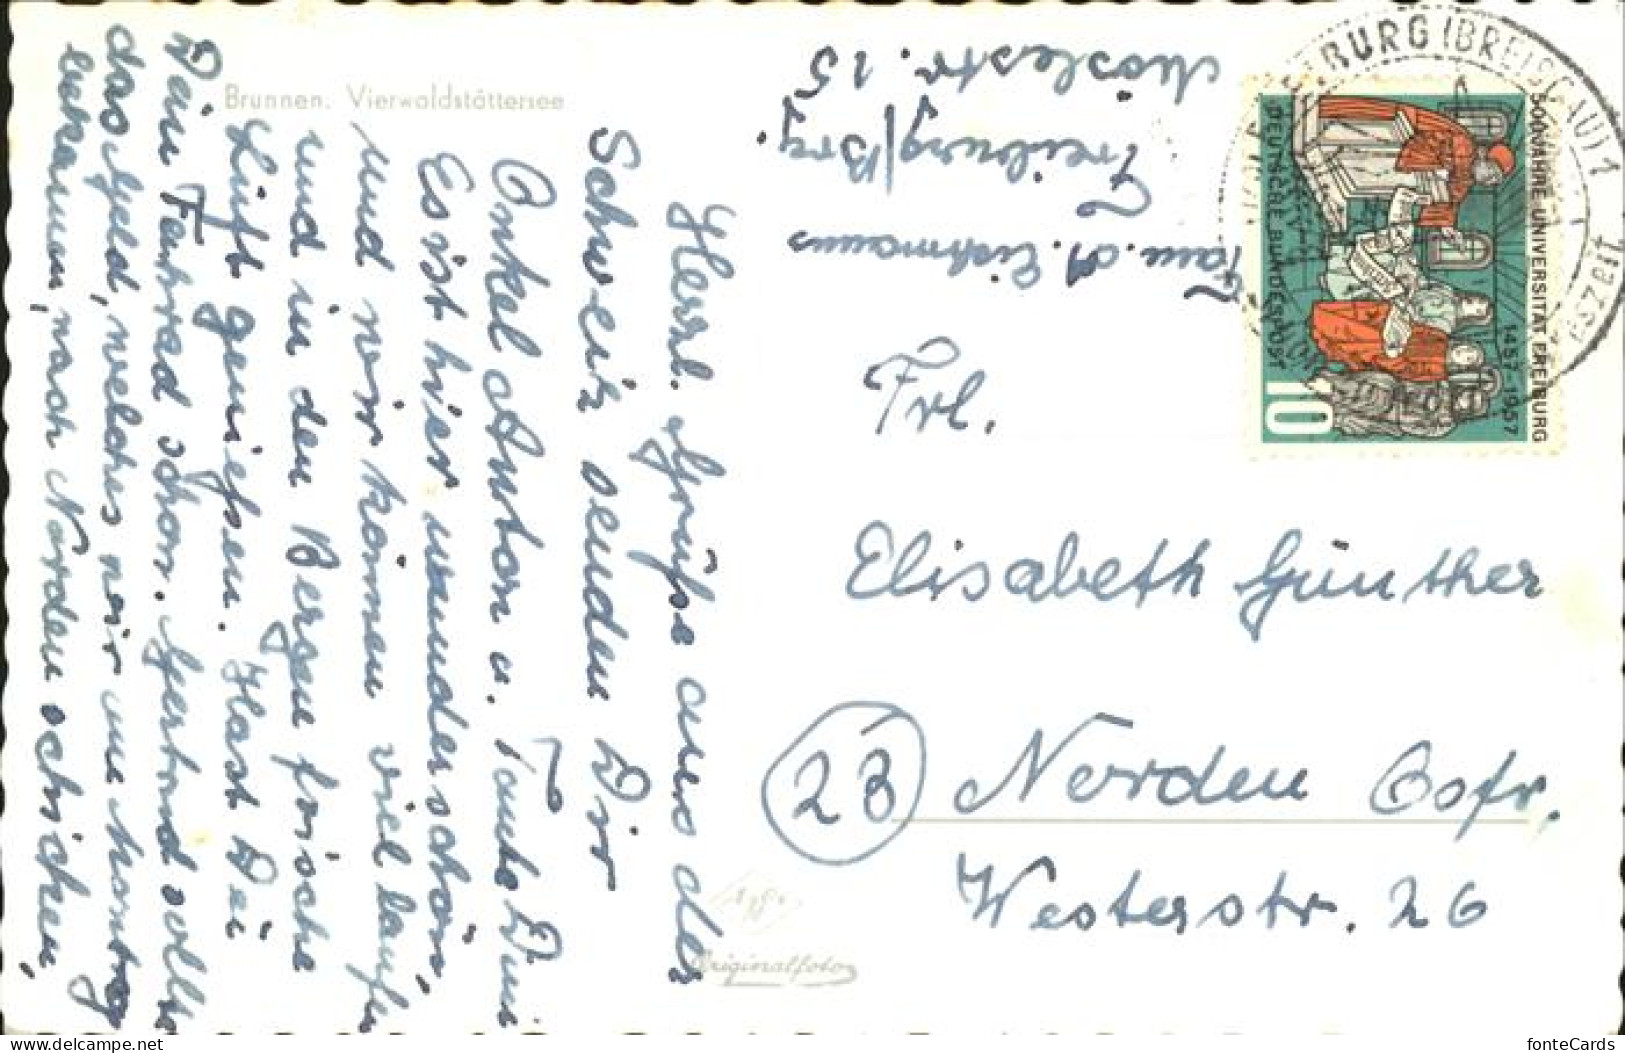 Brunnen. Vierwaldstättersee
Herzl. Grüße aus der
Schweiz senden Dir
Onkel Anton u. Tante
Es ist hier wunderschön,
und wir können viel laufen
und in den Bergen frische
Luft genießen. Hast Du
Dein Fahrrad schon. Gertrud sollte
das Geld, welches wir am Montag
bekamen, nach Norden schicken,
Fam. A.
Freiburg/Brg.
Möslestr. 15
FREIBURG (BREISGAU) 1
500 JAHRE UNIVERSITÄT FREIBURG
1457-1957
DEUTSCHE BUNDESPOST
10
Frl.
Elisabeth Günther
23 Norden Ostfr.
Westerstr. 26
Agfa
Originalfoto
fonteCards